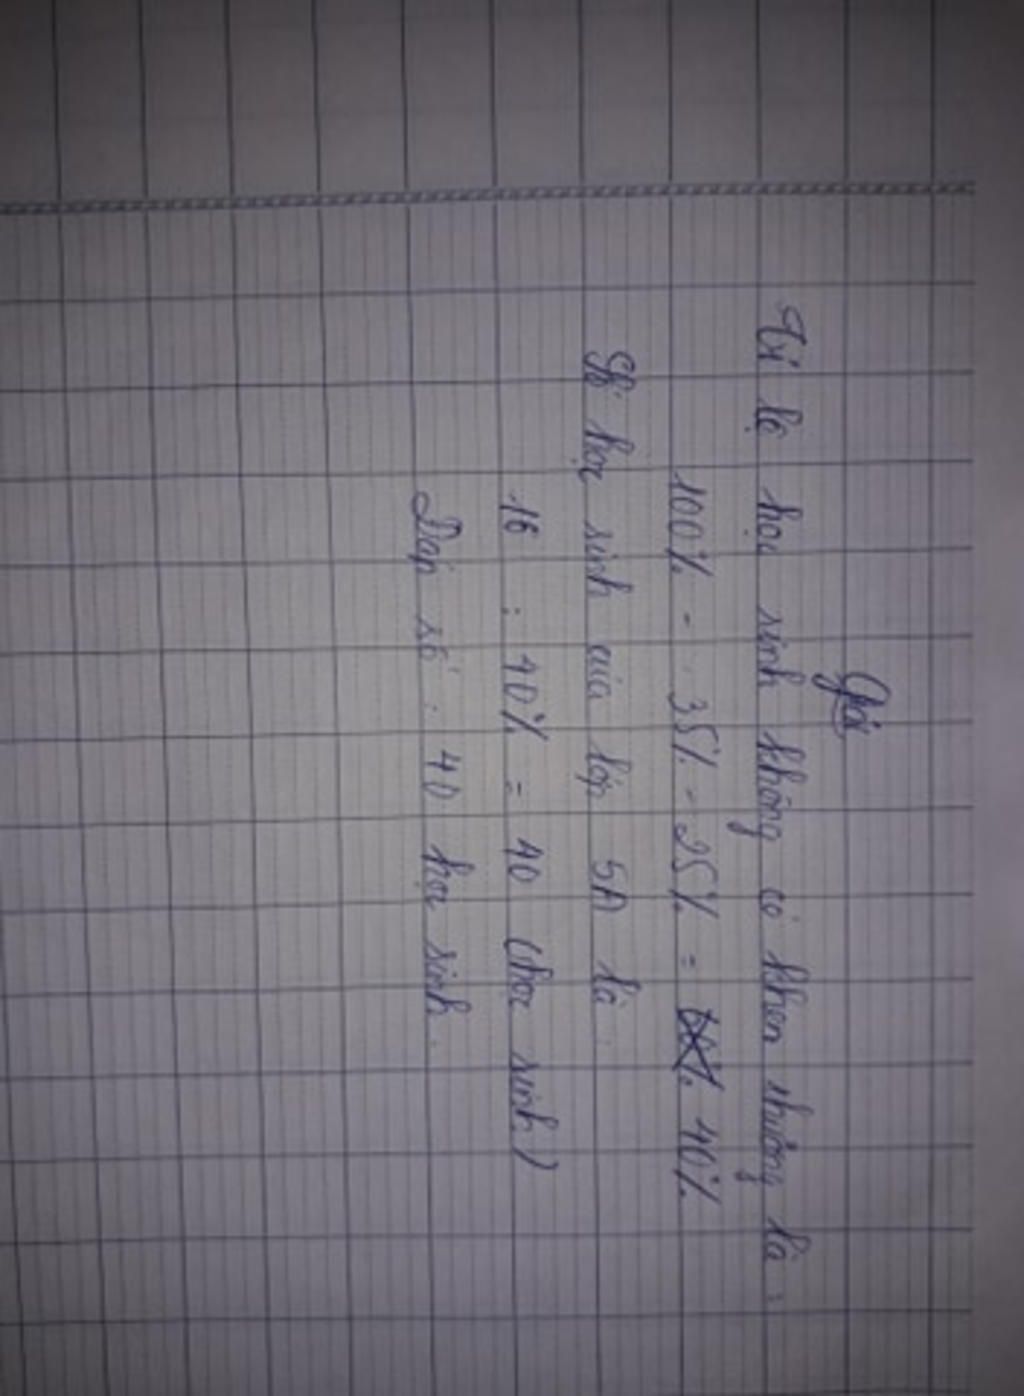 Giải
Tỉ lệ học sinh không có khen thưởng là :
100% - 35% - 25% = 40%
Số học sinh của lớp 5A là :
16 : 40% = 40 (học sinh)
Đáp số : 40 học sinh.